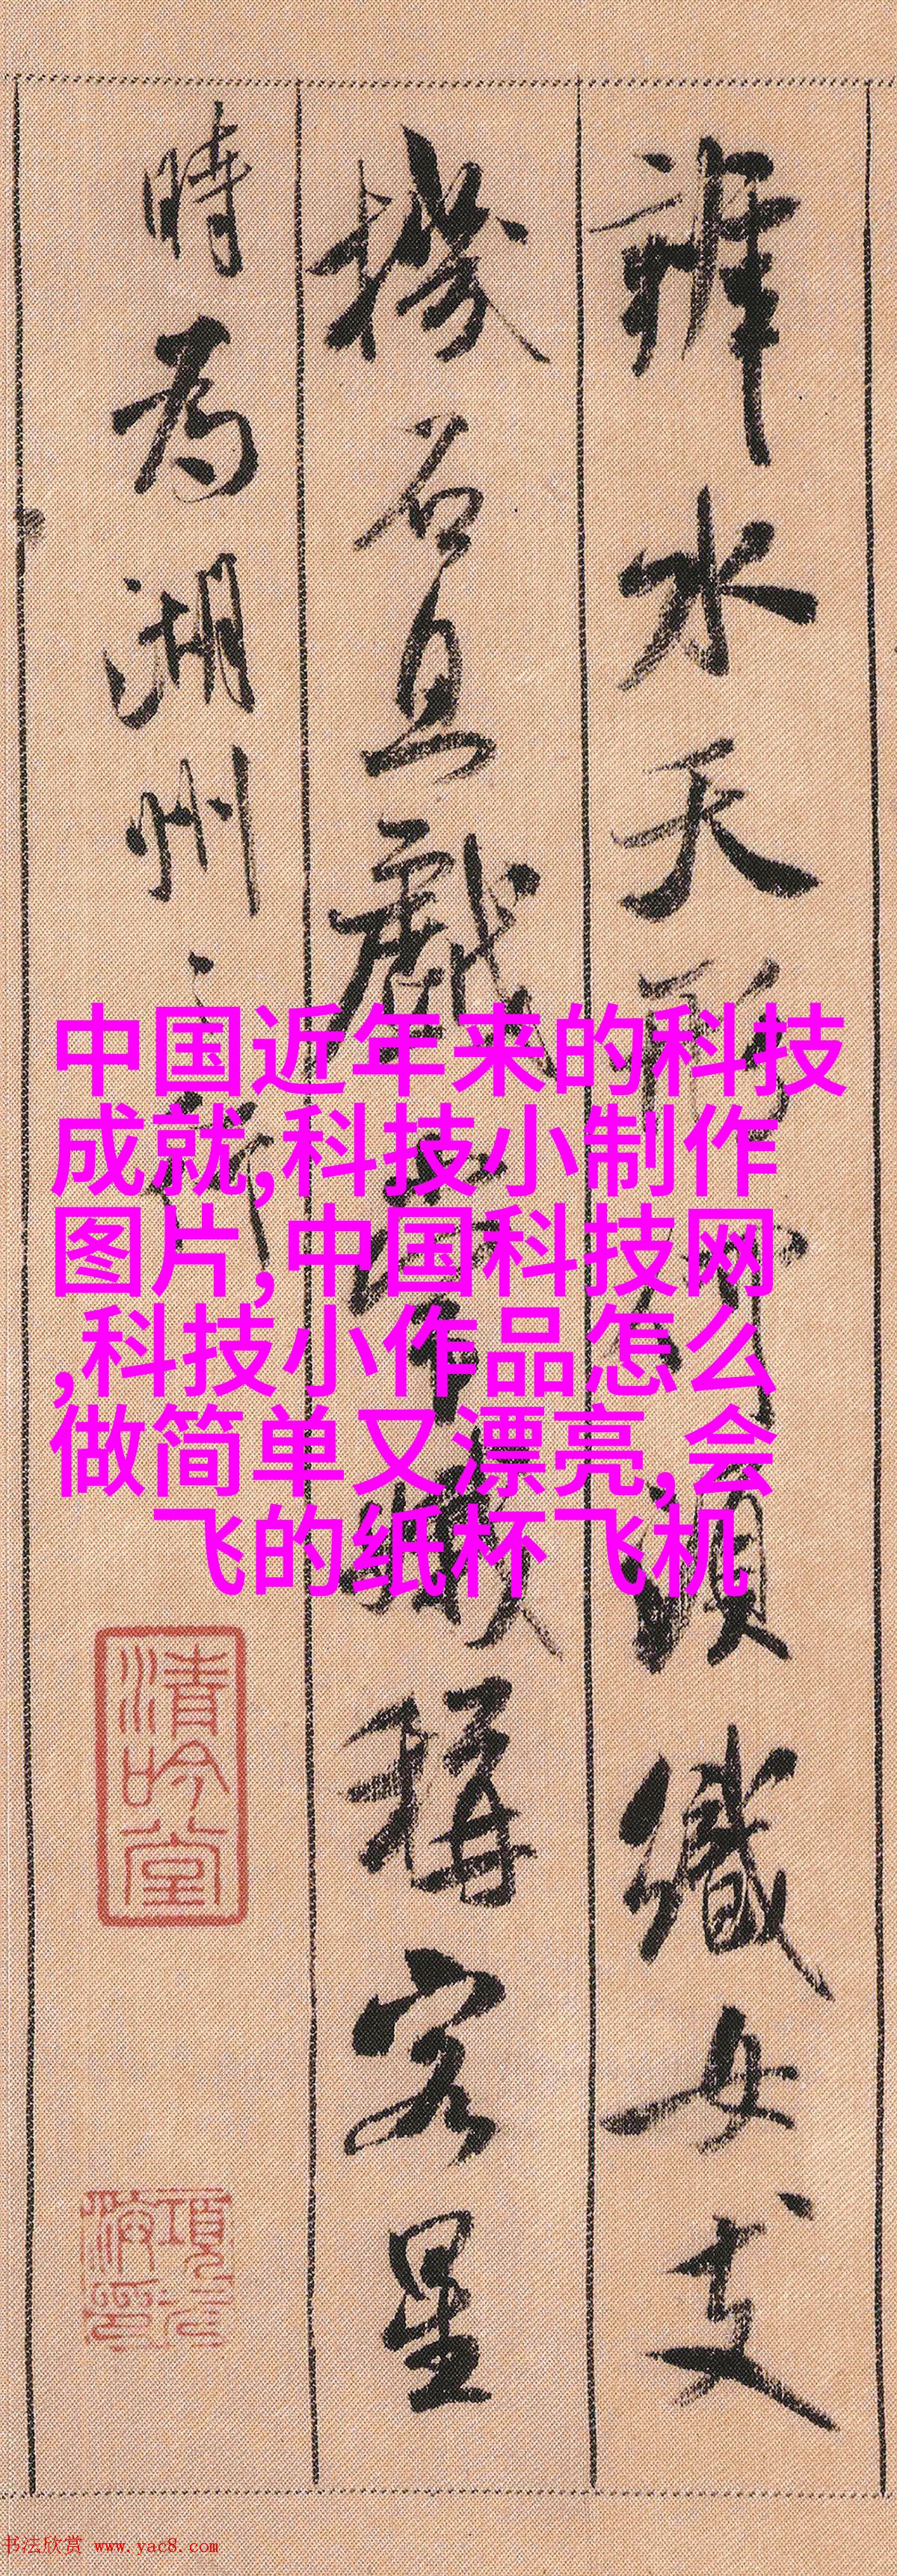 中国近年来的科技
成就,科技小制作
图片,中国科技网
,科技小作品怎么
做简单又漂亮,会
飞的纸杯飞机
水天所 须织女支
机石且戏 称客星
時為湖州之行
清吟堂
书法欣赏 www.yac8.com